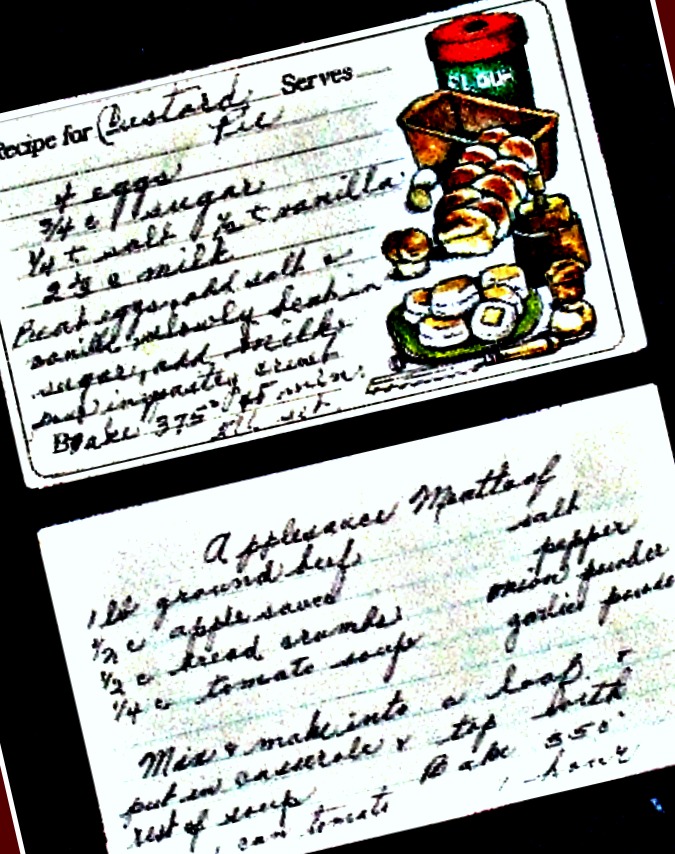 FLOUR
Recipe for Custard Serves
Pie
4 eggs
3/4 c sugar
1/4 t salt 1/2 t vanilla
c milk
Beat eggs, add salt &
vanilla, slowly beat in
sugar, add milk,
pastry
Bake 375° 45 min.
Applesauce Meatloaf
1 lb ground beef salt
1/2 c applesauce pepper
1/2 c bread crumbs onion powder
1/4 c tomato soup garlic powde
Mix & make into a loaf &
put in casserole & top with
rest of soup Bake 350°
1 can tomato 1 hour